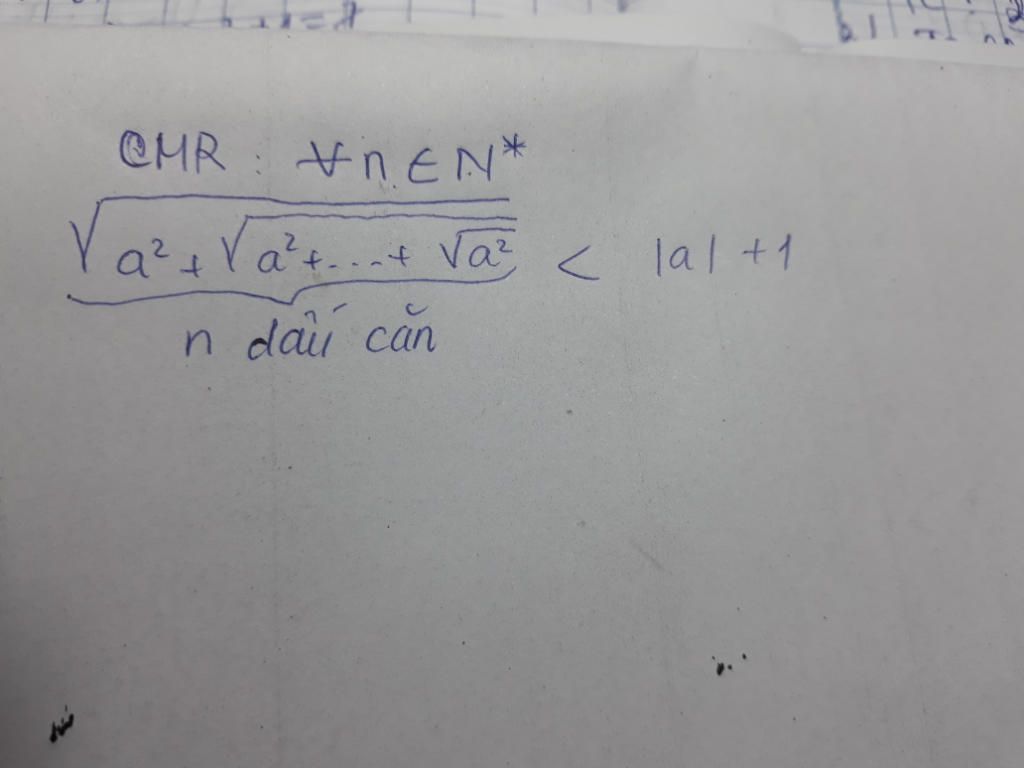 CMR : ∀n ∈ N*
√(a² + √(a² + ... + √a²)) < |a| + 1
n dấu căn